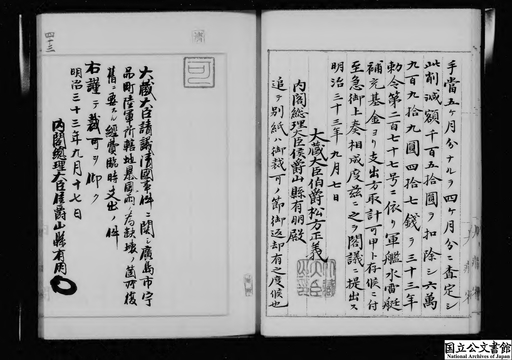 手當五ヶ月分ナルヲ四ヶ月分ニ査定シ
此削減額千百五拾圓ヲ扣除シ六萬
九百九拾九圓四拾七錢ヲ三十三年
勅令第二百七十七号ニ依リ軍艦水雷艇
補充基金ヨリ支出方取計可申ト存候ニ付
至急御上奏相成度茲ニ之ヲ閣議ニ提出ス
明治三十三年九月七日
大藏大臣伯爵松方正義
内閣總理大臣侯爵山縣有朋殿
追テ別紙ハ御裁可ノ節御返却有之度候也
四十三
大藏大臣請議清國事件ニ関シ廣島市宇
品町陸軍所轄地暴風雨ノ為破壊ノ箇所復
舊ニ要スル總費臨時支出ノ件
右謹テ裁可ヲ仰ク
明治三十三年九月十七日
内閣總理大臣侯爵山縣有朋
国立公文書館
National Archives of Japan